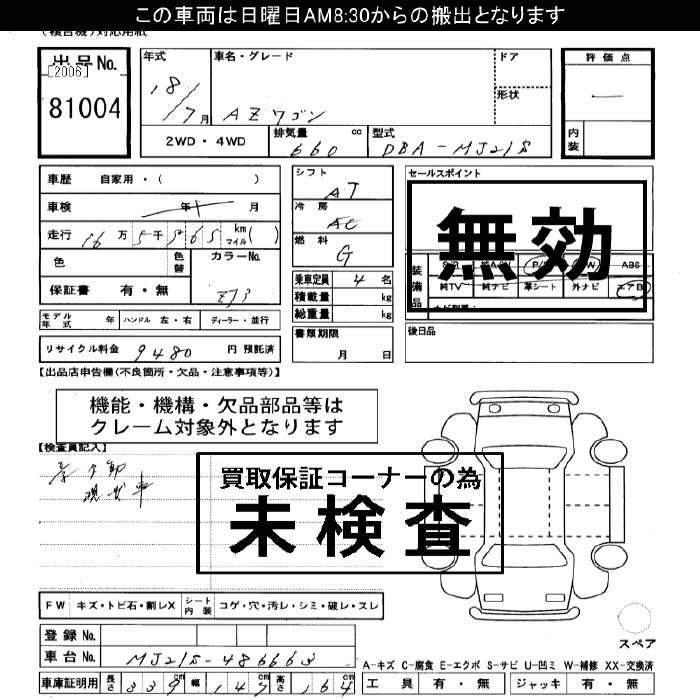 この車両は日曜日AM8:30からの搬出となります
出品No.
[2006]
81004
年式
18/7月
車名・グレード
AZワゴン
ドア
形状
評価点
内装
2WD・4WD
排気量 660 cc
型式 DBA-MJ21S
車歴 自家用・( )
車検 年 月
走行 16万5千565 km マイル( )
色
色替
カラーNo. ZJ3
保証書 有・無
シフト AT
冷房 AC
燃料 G
乗車定員 4名
積載量 kg
総重量 kg
セールスポイント
無効
装備品
ABS
純TV 純ナビ 革シート 外ナビ エアB
後日品
モデル年式 年 ハンドル 左・右 ディーラー・並行
書類期限
月 日
リサイクル料金 9480 円 預託済
【出品店申告欄(不良箇所・欠品・注意事項等)】
機能・機構・欠品部品等は
クレーム対象外となります
【検査員記入】
買取保証コーナーの為
未検査
現状車
FW キズ・トビ石・割レX シート内装 コゲ・穴・汚レ・シミ・破レ・スレ
登録No.
車台No. MJ21S-486663
スペア
A-キズ C-腐食 E-エクボ S-サビ U-凹ミ W-補修 XX-交換済
車庫証明用 長さ 339cm 幅 147cm 高さ 164cm
工具 有・無 ジャッキ 有・無